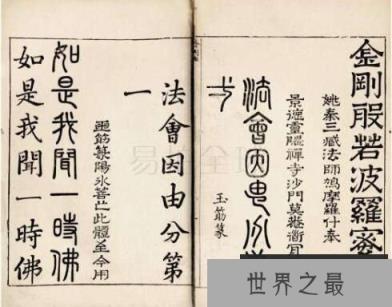 金剛般若波羅蜜
姚秦三藏法師鳩摩羅什奉
靈隱禪寺沙門莫菴
法會因由分
弌
玉筯篆
法會因由分第
一
筯篆陽氷善此體至今用
如是我聞一時佛
如是我聞一時佛
世界之最